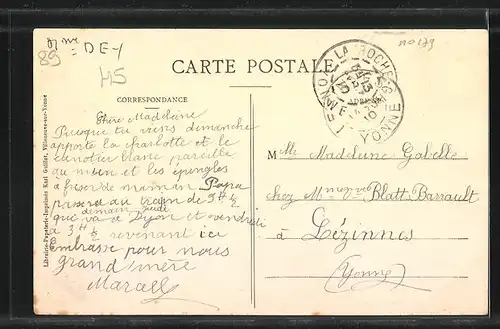 89
DE-1
45
no 179
CARTE POSTALE
CORRESPONDANCE
Chère Madeleine
Puisque tu viens dimanche
apporte la charlotte et le
canotier blanc pareille
au mien et les épingles
à friser de maman Papa
passera au train de 3H ½
demain jeudi
que va de Dijon et vendredi
à 3H ½ revenant ici
Embrasse pour nous
grand mère
Marcelle
LA ROCHE
YONNE
Mlle Madeleine Gabelle
chez Mme Vve Blatt Barrault
à Lézinnes
(Yonne)
Librairie-Papeterie-Imprimerie Karl Guillot, Villeneuve-sur-Yonne